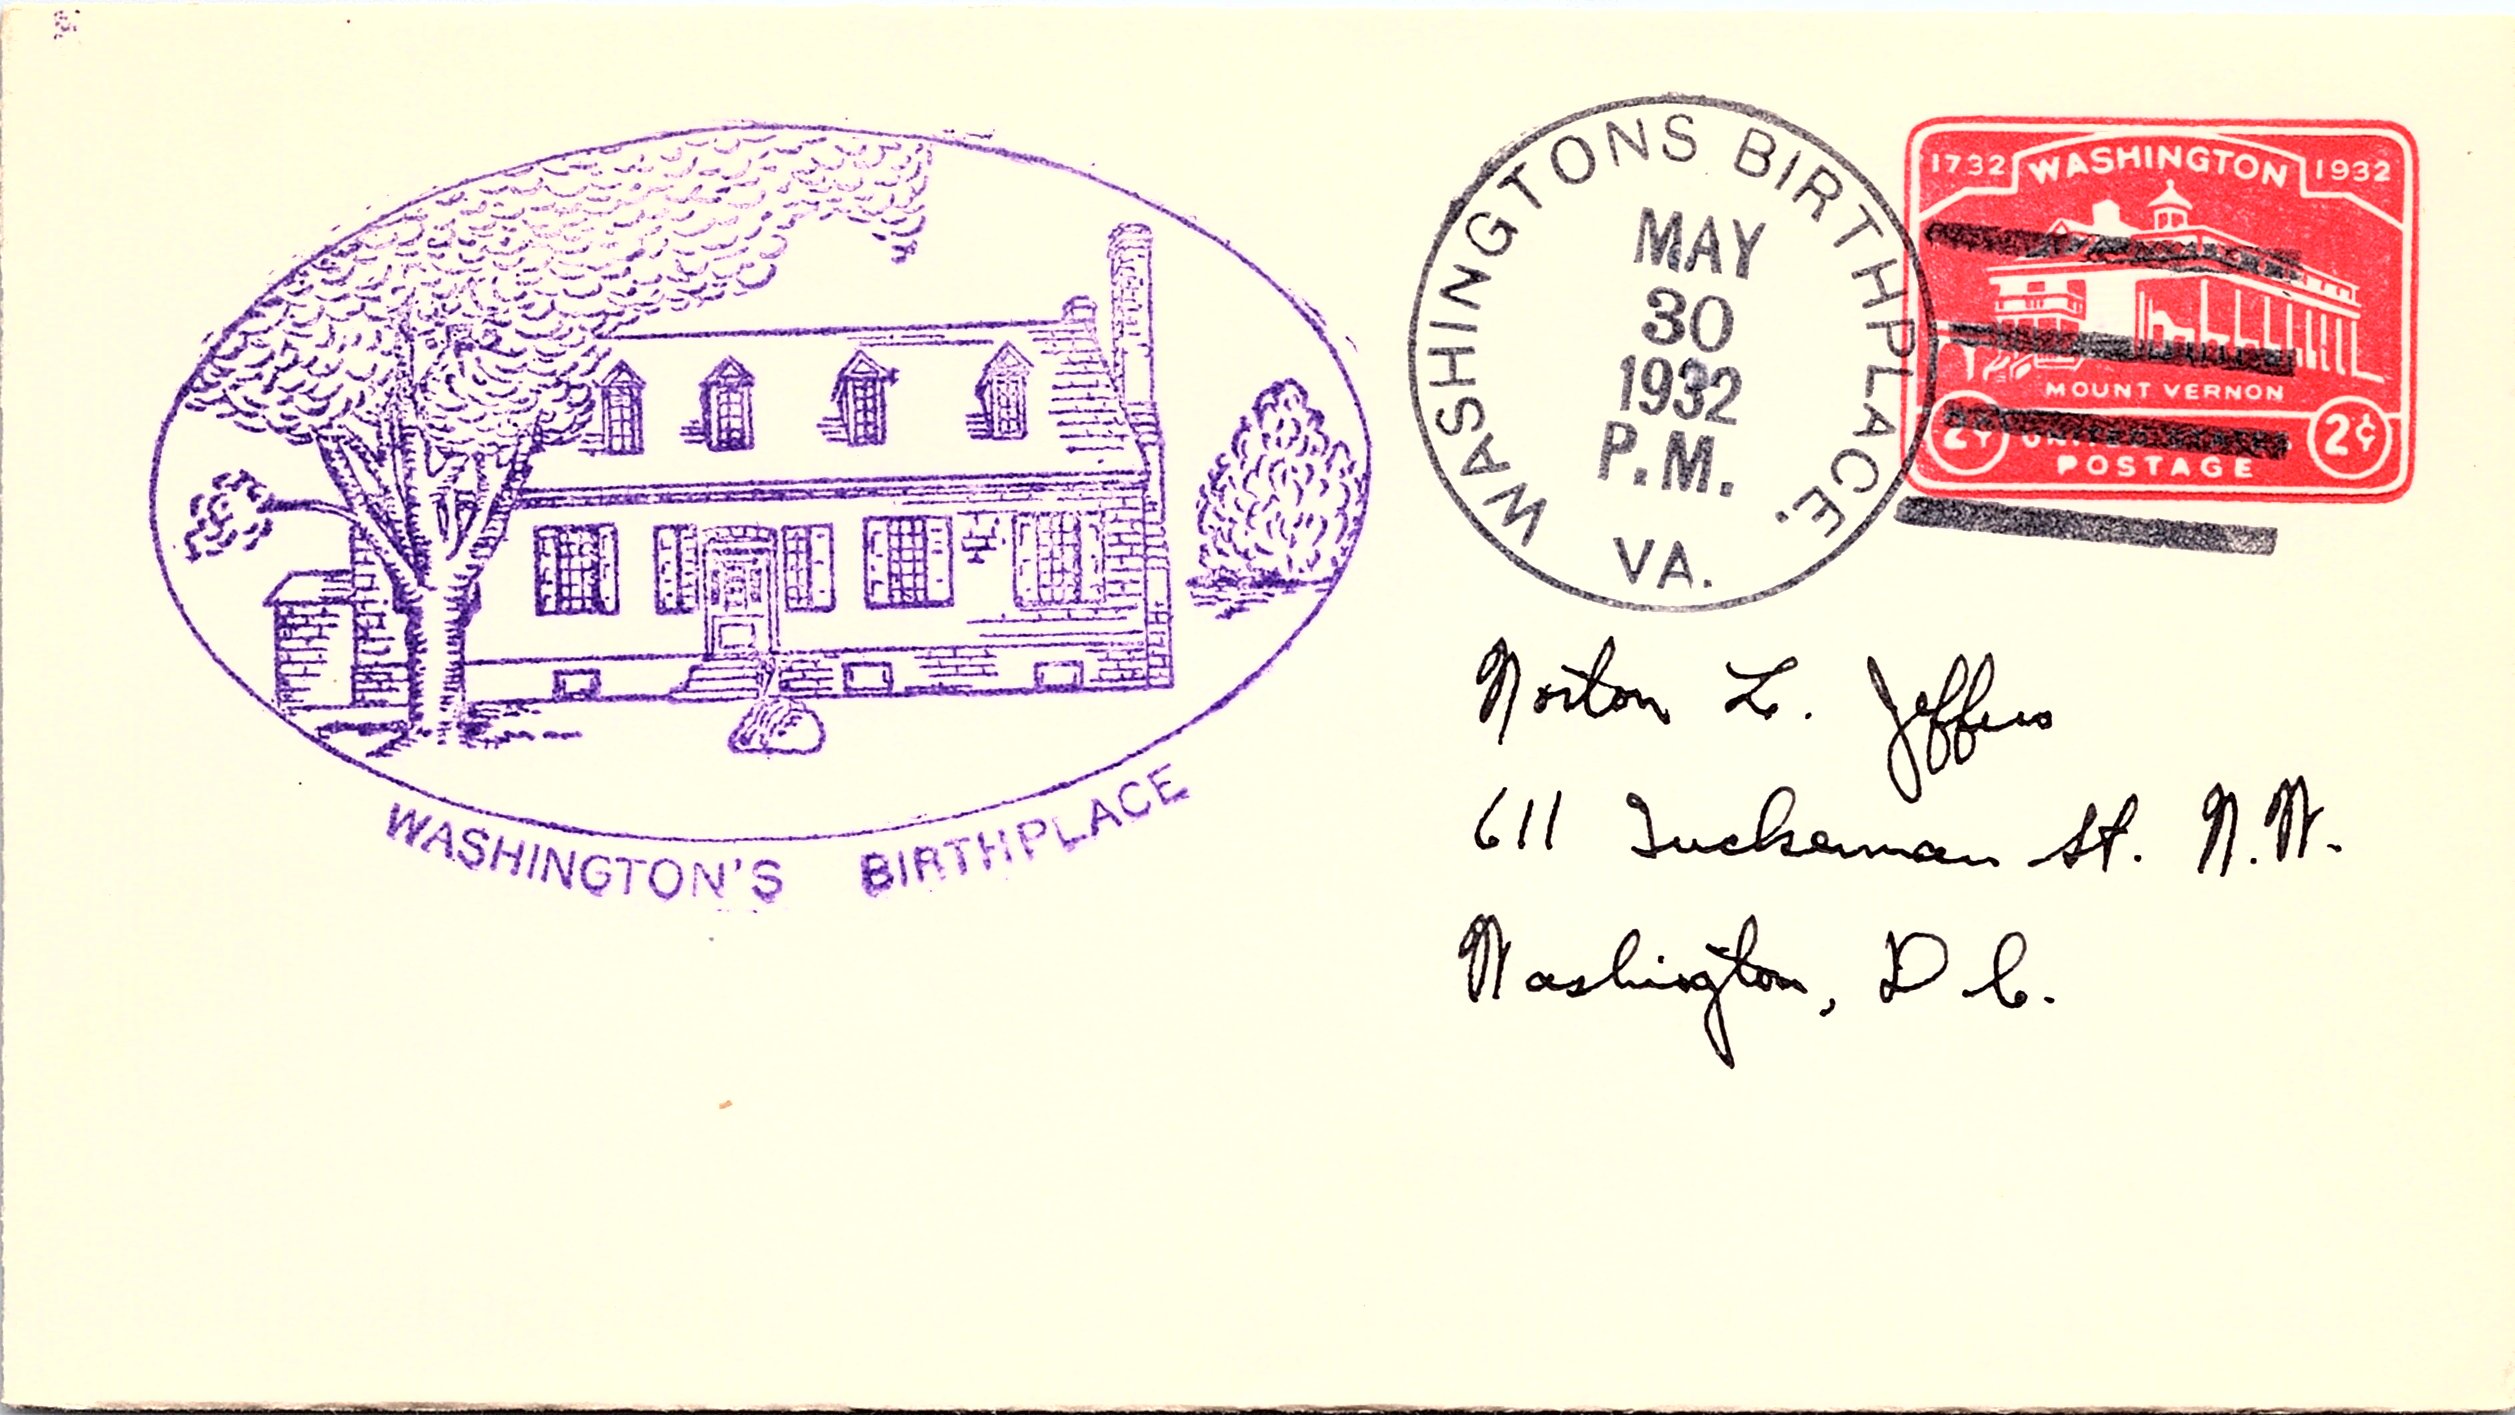 WASHINGTON'S BIRTHPLACE
WASHINGTONS BIRTHPLACE.
MAY
30
1932
P.M.
VA.
1732 WASHINGTON 1932
MOUNT VERNON
2¢ UNITED STATES 2¢
POSTAGE
Norton L. Jeffers
611 Tuckerman St. N.W.
Washington, D C.